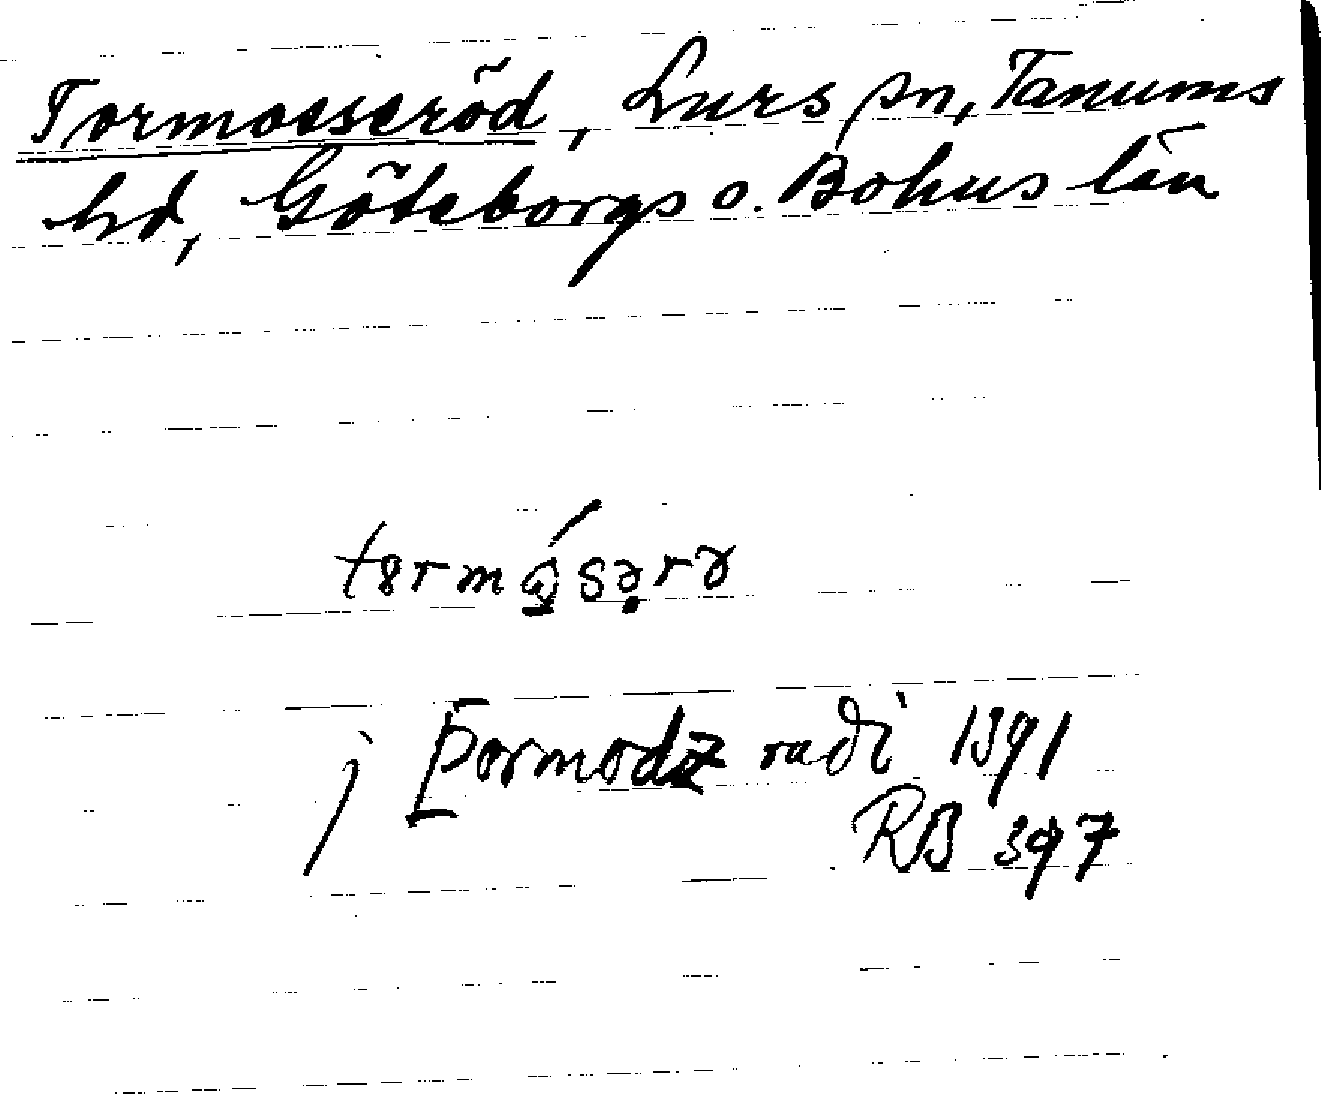 Tormosseröd, Lurs sn, Tanums
hd, Göteborgs o. Bohus län
j Þormodz rudi 1391
RB 397